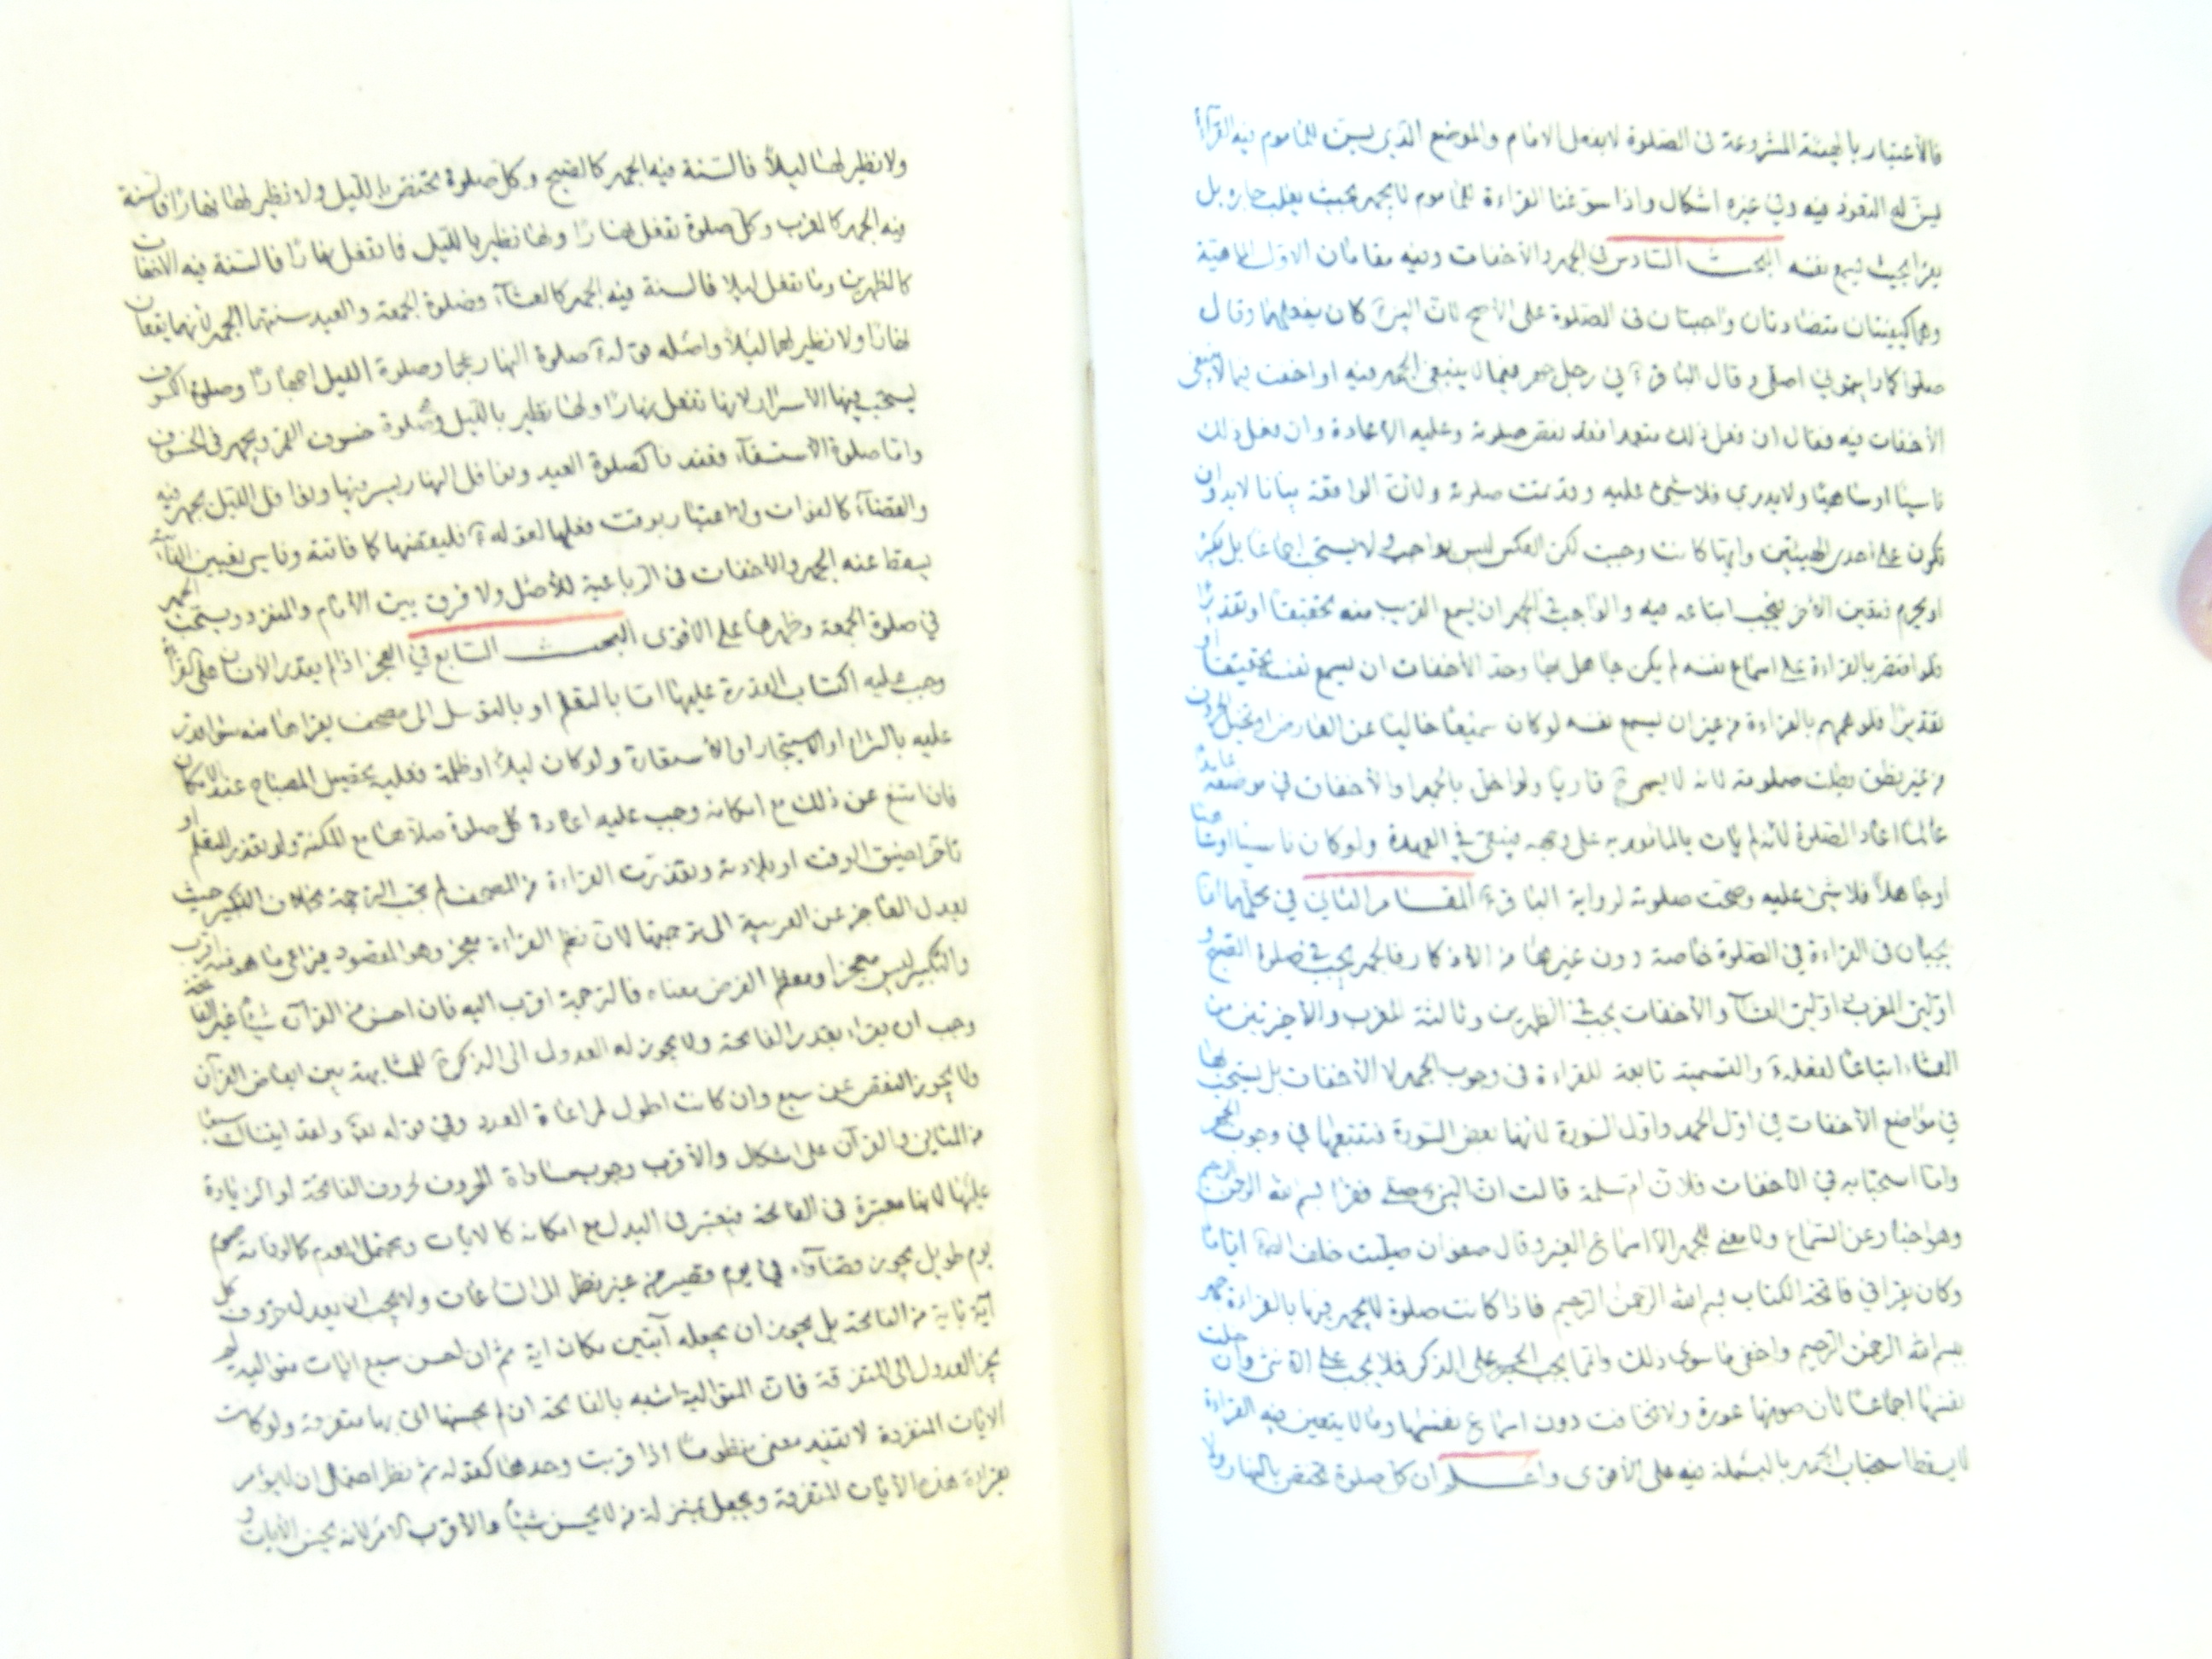 فالأعتبار بالهيئة المشروعة فى الصلوة لابفعل الامام والموضع الذى ليس للماموم فيه القرآءة
ليس له التعوذ فيه وفي غيره اشكال واذا سوغنا القراءة للماموم لايجهر بحيث يغلب جاره بل
يقرا بحيث يسمع نفسه البحث السادس فى الجهر والأخفات وفيه مقامان الاوّل الماهية
وهما كيفيتان متضادتان واجبتان فى الصّلوة على الأصح لان النبى كان يفعلهما وقال
صلوا كما رايتموني اصلى وقال الباقر في رجل جهر فيما لا ينبغى الجهر فيه او اخفت فيما لا ينبغى
الأخفات فيه فقال ان فعل ذلك متعمدا فقد نقض صلوته وعليه الاعادة وان فعل ذلك
ناسيا اوساهيا ولايدري فلا شئ عليه وقد تمت صلوته ولان الواقعة بيانا لابد وان
تكون على احدى الهيئتين وايتها كانت وجبت لكن العكس ليس بواجب ولا يستحب اجماعا بل يكره
او يحرم فتعين الاخر فيجب اتباعه فيه والواجب فى الجهر ان يسمع القريب منه تحقيقا او تقديرًا
فلو اقتصر بالقراءة على اسماع نفسه لم يكن جاهرا بها وحد الأخفات ان يسمع نفسه تحقيقا او
تقديرًا فلو همهم بالقراءة من غير ان يسمع نفسه لو كان سميعًا خاليا عن العارض او تخيل الحروف
من غير نطق بطلت صلوته لانه لا يسمى قاريا ولو اخل بالجهر او الأخفات في موضعه عامدًا
عالما اعاد الصّلوة لأنه لم يات بالمامور به على وجهه فيبقى في العهدة ولو كان ناسيا اوساهيا
او جاهلاً فلا شئ عليه وصحت صلوته لرواية الباقر المقام الثاني في محلهما انما
يجبان فى القراءة في الصّلوة خاصة دون غيرها من الاذكار فالجهر يجب في صلوة الصبح و
اولتى المغرب و اولتى العشآء والأخفات يجب فى الظهرين وثالثة المغرب والأخيرتين من
العشاء اتباعا لفعله والتسمية تابعة للقراءة فى وجوب الجهر لا الأخفات بل يستحب الجهر بها
في مواضع الأخفات في اول الحمد واول السّورة لأنها بعض السّورة فتتبعها في وجوب الجهر
واما استحبابه في الاخفات فلان ام سلمة قالت ان النبى صلى فقرا بسم الله الرحمن الرحيم
وهو اخبار عن السّماع ولا معنى للجهر الا اسماع الغير وقال صفوان صليت خلف اياما
وكان يقرا في فاتحة الكتاب بسم الله الرحمن الرحيم فاذا كانت صلوة لا يجهر فيها بالقراءة جهر
ببسم الله الرحمن الرحيم واخفى ما سوى ذلك وانما يجب الجهر على الذكر فلا يجب على الانثى وان
نفسها اجماعا لان صوتها عورة ولا تخافت دون اسماع نفسها وما لا يتعين فيه القراءة
لا يسقط استحباب الجهر بالبسملة فيه على الأقوى واعلم ان كل صلوة تختص بالنهار ولا
ولا نظير لها ليلاً فالسّنة فيه الجهر كالصبح وكل صلوة تختص بالليل ولا نظير لها نهارًا فالسنة
فيه الجهر كالمغرب وكل صلوة تفعل نهارًا ولها نظير بالليل فما تفعل نهارًا فالسنة فيه الاخفات
كالظهرين وما تفعل ليلا فالسنة فيه الجهر كالعشآء وصلوة الجمعة والعيد سنتهما الجهر لأنهما يقعان
نهارًا ولا نظير لهما ليلاً واصله قوله صلوة النهار عجما وصلوة الليل اجهارًا وصلوة الكسوف
يستحب فيها الاسرار لانها تفعل نهارًا ولها نظير بالليل وهى صلوة خسوف القمر ويجهر فى الخسوف
واما صلوة الأستسقآء فعندنا كصلوة العيد ونوافل النهار يسر فيها ونوافل الليل يجهر فيه
والقضآء كالفوات ولا اعتبار بوقت فعلها لقوله فليقضها كما فاتته وناسي تعيين الفآئتة
يسقط عنه الجهر والاخفات فى الرباعية للأصل ولا فرق بين الأمام والمنفرد ويستحب الجهر
في صلوة الجمعة وظهرها على الاقوى البحث السّابع في العجز اذا لم يقدر الأنسان على القراءة
وجب عليه اكتساب القدرة عليها اما بالتعلم او بالتوسل الى مصحف يقراها منه سواء قدر
عليه بالشراء او الاستيجار او الأستعارة ولو كان ليلاً او ظلمة فعليه تحصيل المصباح عند الأمكان
فان امتنع عن ذلك مع امكانه وجب عليه اعادة كل صلوة صلاها مع المكنة ولو تعذر التعلم او
تاخر لضيق الوقت او بلادته وتعذرت القراءة من المصحف لم يجب الترجمة بخلاف التكبير حيث
يعدل العاجز عن العربية الى ترجمتها لان نظم القراءة معجز وهو المقصود فيراعى ما هو منه اقرب
والتكبير ليس معجزا ومعظم الغرض معناه فالترجمة اقرب اليه فان احسن من القرآن شيئًا غير الفاتحة
وجب ان يقراء بقدر الفاتحة ولا يجوز له العدول الى الذكر للمشابهة بين ابعاض القرآن
ولا يجوز النقص عن سبع وان كانت اطول لمراعاة العدد وفي قوله تعالى ولقد اتيناك سبعا
من المثاني والقرآن على اشكال والأقرب وجوب مساواة الحروف لحروف الفاتحة او الزيادة
عليها لانها معتبرة فى الفاتحة فيعتبر فى البدل مع امكانه كالايات ويحتمل العدم كالوفاته صوم
يوم طويل يجوز قضآؤه في يوم قصير من غير نظر الى السّاعات ولا يجب ان يعدل حروف كل
آية باية من الفاتحة بل يجوز ان يجعله آيتين مكان اية ثم ان احسن سبع ايات متوالية لم
يجز العدول الى المتفرقة فان المتوالية اشبه بالفاتحة ان لم يحسنها اتى بها متفرقة ولو كانت
الايات المنفردة لا تفيد معنى منظوما اذا قريت وحدها كقوله ثم نظر احتمل ان لا يؤمر
بقراءة هذه الأيات المتفرقة ويجعل بمنزلة من لا يحسن شيئًا والأقرب الامر لانه يحسن الأيات و